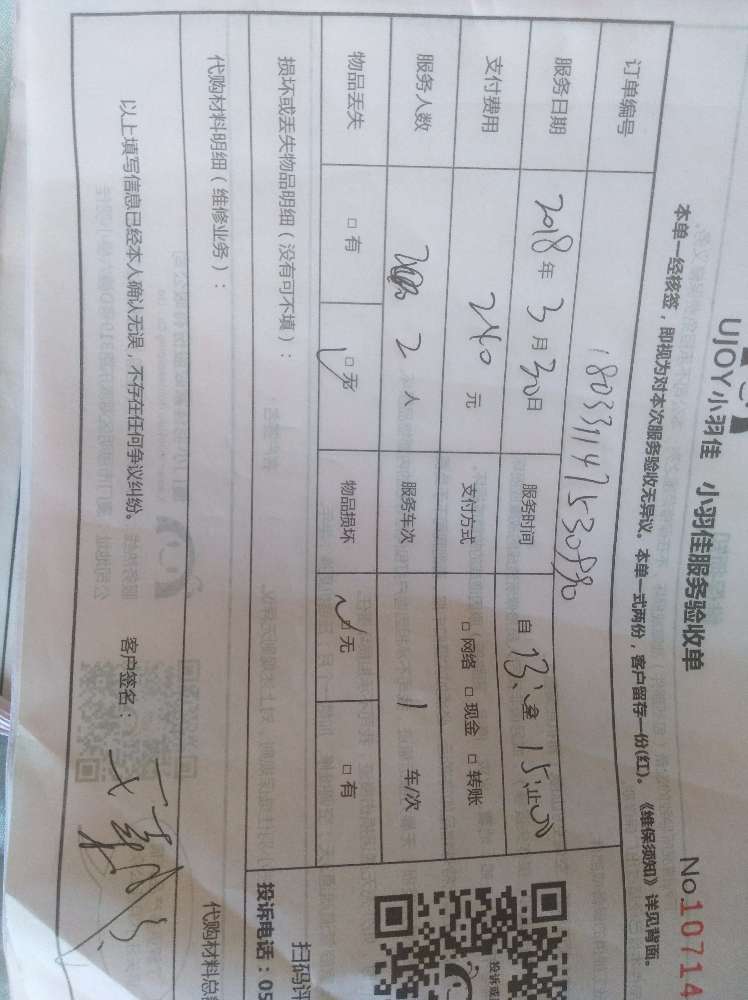 UJOY小羽佳 小羽佳服务验收单
No10714
本单一经核签，即视为对本次服务验收无异议。本单一式两份，客户留存一份(红)。《维保须知》详见背面。
订单编号
服务日期 2018年3月30日 服务时间 自 13: 至 15:00止
支付费用 240元 支付方式 □网络 □现金 □转账
服务人数 2人 服务车次 1 车/次
物品丢失 □有 □无 物品损坏 □无 □有
损坏或丢失物品明细（没有可不填）：
代购材料明细（维修业务）：
代购材料总
以上填写信息已经本人确认无误，不存在任何争议纠纷。 客户签名：
扫码评
投诉电话：05